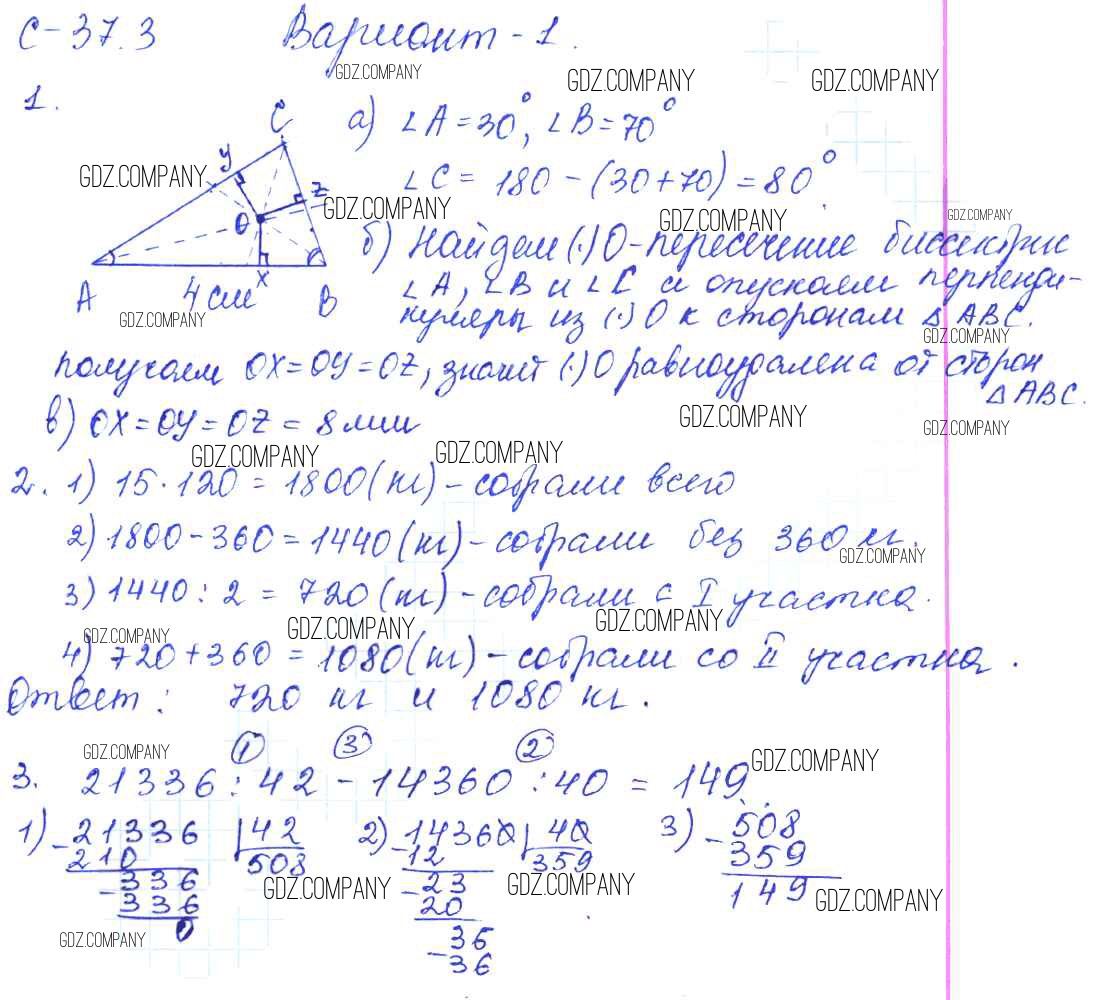 С-37.3 Вариант-1.
GDZ.COMPANY GDZ.COMPANY GDZ.COMPANY
1.
C
а) ∠A=30°, ∠B=70°
y
GDZ.COMPANY
∠C= 180-(30+70)=80°.
z
GDZ.COMPANY GDZ.COMPANY GDZ.COMPANY
O
б) Найдем (·)O-пересечение биссектрис
x
A 4 см B
∠A, ∠B и ∠C и опускаем перпенди-
GDZ.COMPANY
куляры из (·)O к сторонам △ABC.
GDZ.COMPANY
получаем OX=OY=OZ, значит (·)O равноудалена от сторон
△ABC.
в) OX=OY=OZ = 8 мм
GDZ.COMPANY GDZ.COMPANY
GDZ.COMPANY GDZ.COMPANY
2. 1) 15·120=1800(кг)-собрали всего
2) 1800-360=1440(кг)-собрали без 360 кг.
GDZ.COMPANY
3) 1440:2 = 720(кг)-собрали с I участка.
GDZ.COMPANY GDZ.COMPANY GDZ.COMPANY
4) 720+360=1080(кг)-собрали со II участка.
Ответ: 720 кг и 1080 кг.
GDZ.COMPANY 1 3 2 GDZ.COMPANY
3. 21336:42-14360:40=149
1) -21336 42 2) -14360 40 3) -508
210 508 12 359 359
-336 -23 149
336 20
0 -36
36
GDZ.COMPANY GDZ.COMPANY GDZ.COMPANY
GDZ.COMPANY